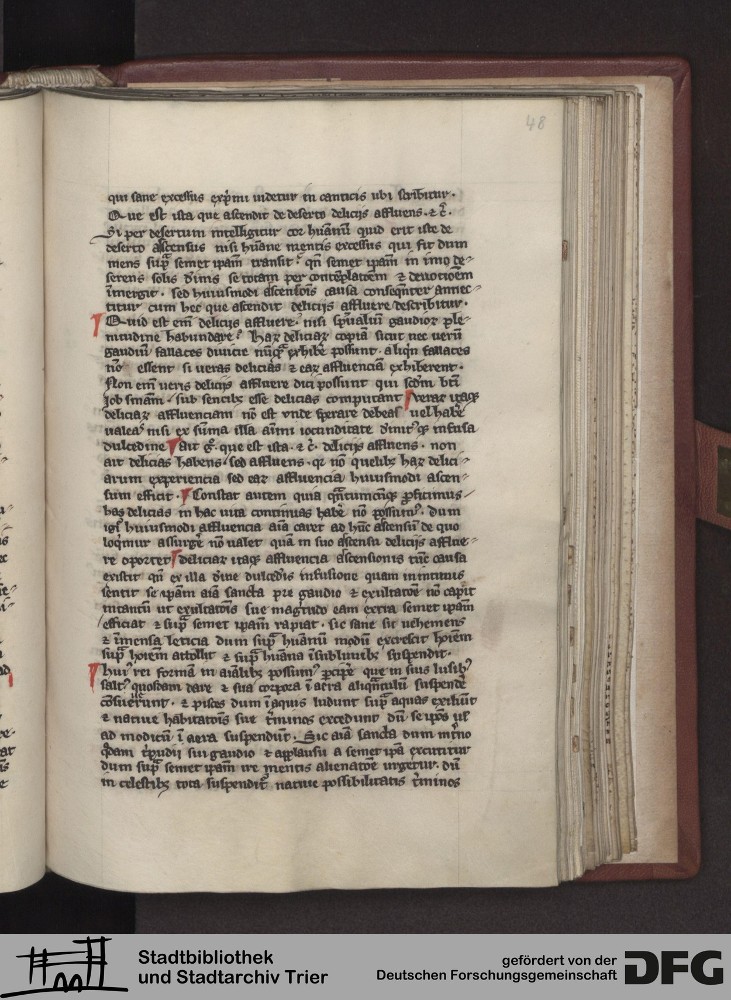 48
qui sane excessus exp̄mi uidetur in canticis ubi scribitur.
Que est ista que ascendit de deserto delicijs affluens. ⁊ c̄.
Si per desertum intelligitur cor hūanū quid erit iste de
deserto ascensus nisi hūane mentis excessus qui fit dum
mens sup̄ semet ip̄am transit. qn̄ semet ip̄am in imo de=
serens solis diuinis se totam per contēplatōem ⁊ deuotiōem
īmergit. sed huiusmodi ascensiōis causa conseqn̄ter annec=
titur cum hec que ascendit delicijs affluere describitur.
Quid est em̄ delicijs affluere nisi sp̄ualiū gaudioꝝ ple=
nitudine habundare. Haꝝ deliciaꝝ copiā sicut nec uerū
gaudiū fallaces diuicie nūq̄ exhibē possunt. alioqn̄ fallaces
nō essent si ueras delicias ⁊ eaꝝ affluenciā exhiberent.
Non em̄ ueris delicijs affluere dici possunt qui scdm̄ bt̄i
Job sn̄iam. sub sentibꝫ esse delicias computant veraꝝ itaqꝫ
deliciaꝝ affluenciam nō est vnde sperare debeas uel habē
ualeas nisi ex sūma illa aīmi iocunditate diuinitꝰ infusa
dulcedine Ait gͦ. que est ista. ⁊ c̄. delicijs affluens. non
ait delicias habens. sed affluens. qꝛ nō quelibꝫ haꝝ delici=
arum experiencia sed eaꝝ affluencia huiusmodi ascen=
sum efficit. Constat autem quia qn̄tumcūqꝫ proficimus
has delicias in hac uita continuas habē nō possumꝰ. dum
igͥ huiusmodi affluencia aīa caret ad hūc ascensū de quo
loqimur assurgē nō ualet quā in suo ascensu delicijs afflue=
re oportet deliciaꝝ itaqꝫ affluencia ascensionis tūc causa
existit qn̄ ex illa diuine dulcedīs infusione quam in intimis
sentit se ip̄am aīa sancta pre gaudio ⁊ exultatōe nō capit
intantū ut exultatōis sue magnitudo eam extra semet ip̄am
efficiat ⁊ sup̄ semet ip̄am rapiat. sic sane sit uehemens
⁊ īmensa leticia dum sup̄ hūanū modū excrescit hoīem
sup̄ hoīem attollit ⁊ sup̄ hūana ī sublimibꝫ suspendit.
Huiꝰ rei formā in aīalibꝫ possumꝰ percipē que in suis lusibꝫ
saltꝰ quosdam dare ⁊ sua corpora ī aera aliqn̄tulū suspendē
cōsuerunt. ⁊ pisces dum ī aquis ludunt sup̄ aquas exiliūt
⁊ natiue habitatōis sue t̄minos excedunt dū se ip̄os uł
ad modicū ī aera suspendūt. Sic aīa sancta dum int̄no
qͦdam tripudij sui gaudio ⁊ applausu a semet ip̄a excutitur
dum sup̄ semet ip̄am ire mentis alienatōe urgetur. dū
in celestibꝫ tota suspendit̄ natiue possibilitatis t̄minos
Stadtbibliothek
und Stadtarchiv Trier
gefördert von der
Deutschen Forschungsgemeinschaft
DFG